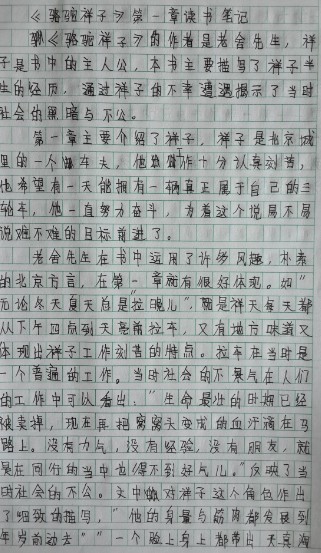 《骆驼祥子》第一章读书笔记
《骆驼祥子》的作者是老舍先生，祥
子是书中的主人公，本书主要描写了祥子半
生的经历，通过祥子的不幸遭遇揭示了当时
社会的黑暗与不公。
第一章主要介绍了祥子，祥子是北京城
里的一个车夫，他工作十分认真刻苦，
他希望有一天能拥有一辆真正属于自己的三
轮车，他一直努力奋斗，为着这个说易不易
说难不难的目标前进了。
老舍先生在书中运用了许多风趣，朴素
的北京方言，在第一章就有很好体现。如“
无论冬天夏天总是拉晚儿”，就是祥天每天都
从下午四点到天亮前拉车，又有地方味道又
体现出祥子工作刻苦的特点。拉车在当时是
一个普遍的工作。当时社会的不景气在人们
的工作中可以看出，“生命最壮的时期已经
被卖掉，现在再把窝窝头变成的血汗滴在马
路上。没有力气，没有经验，没有朋友，就
是在同行的当中也得不到好气儿。”反映了当
时社会的不公。文中对祥子这个角色作出
了细致的描写，“他的身量与筋肉都发展到
年岁前边去”“一个脸上身上都带出天真淘